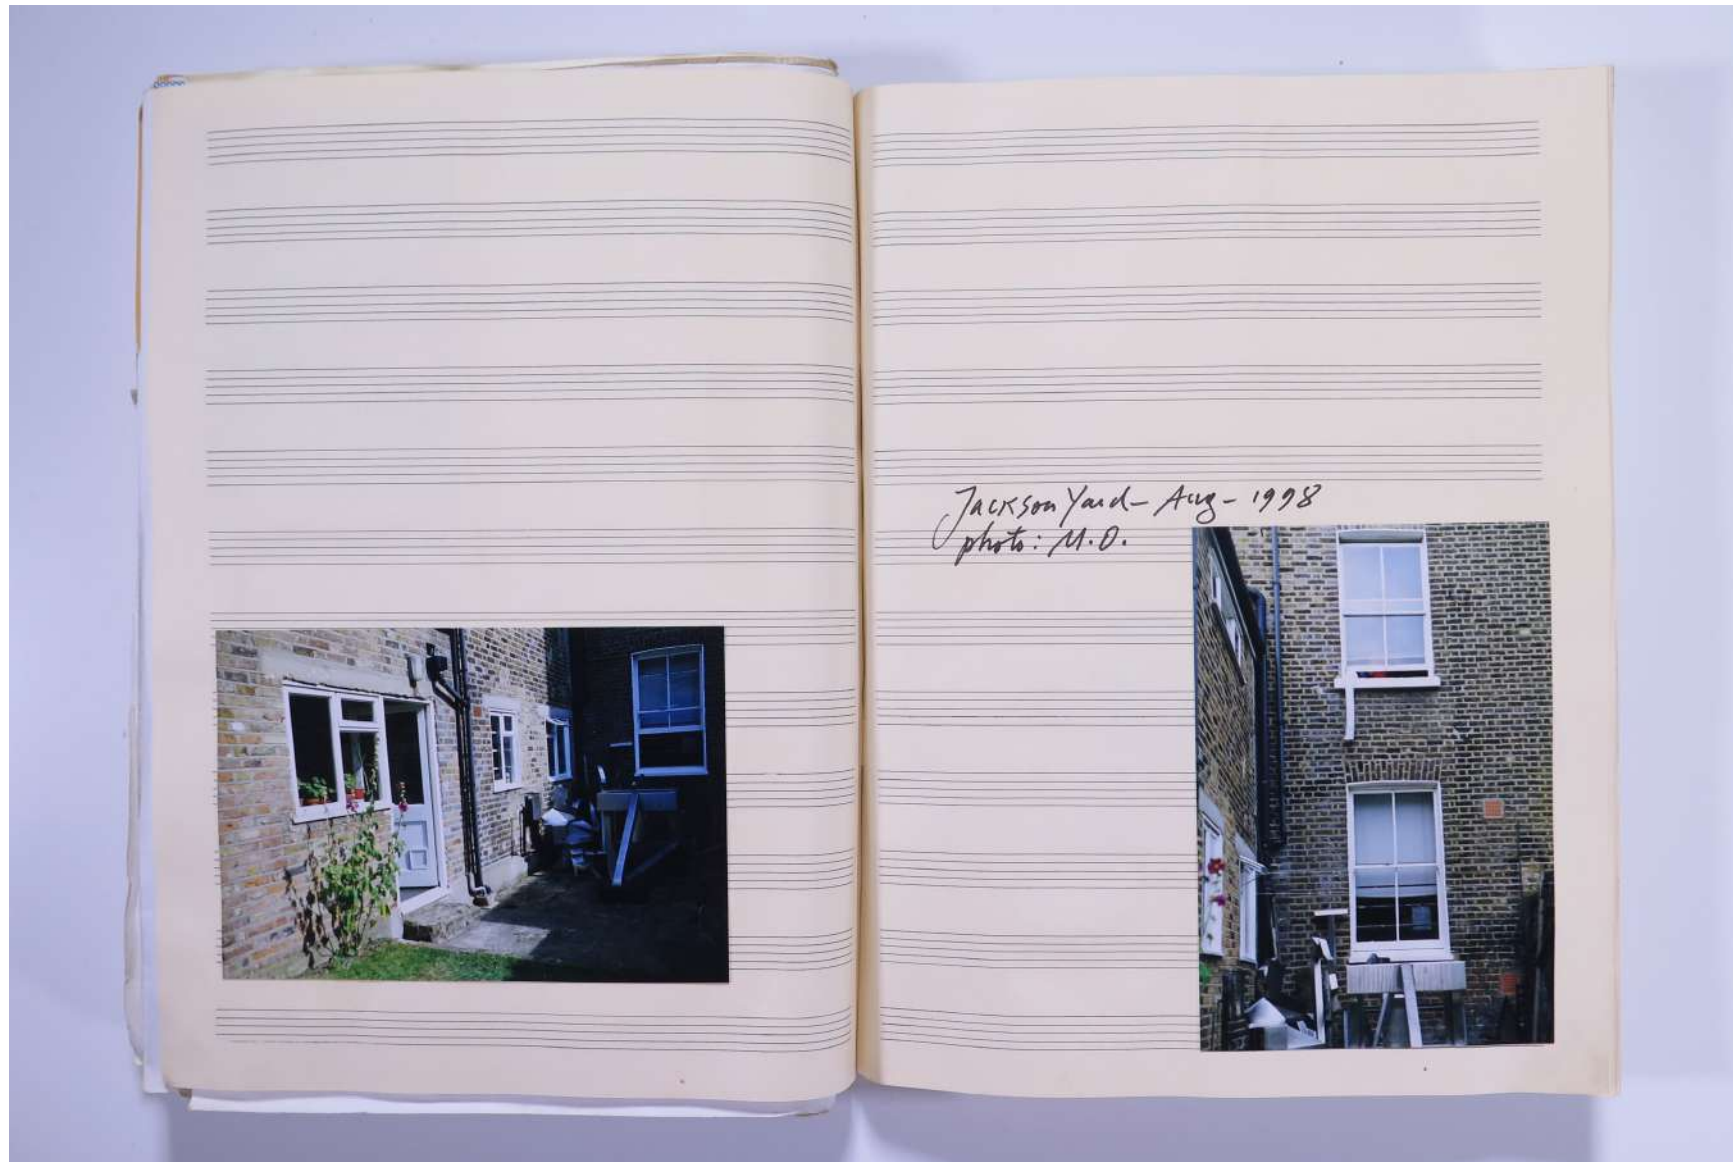 Jackson Yard - Aug - 1998
photo: M.O.